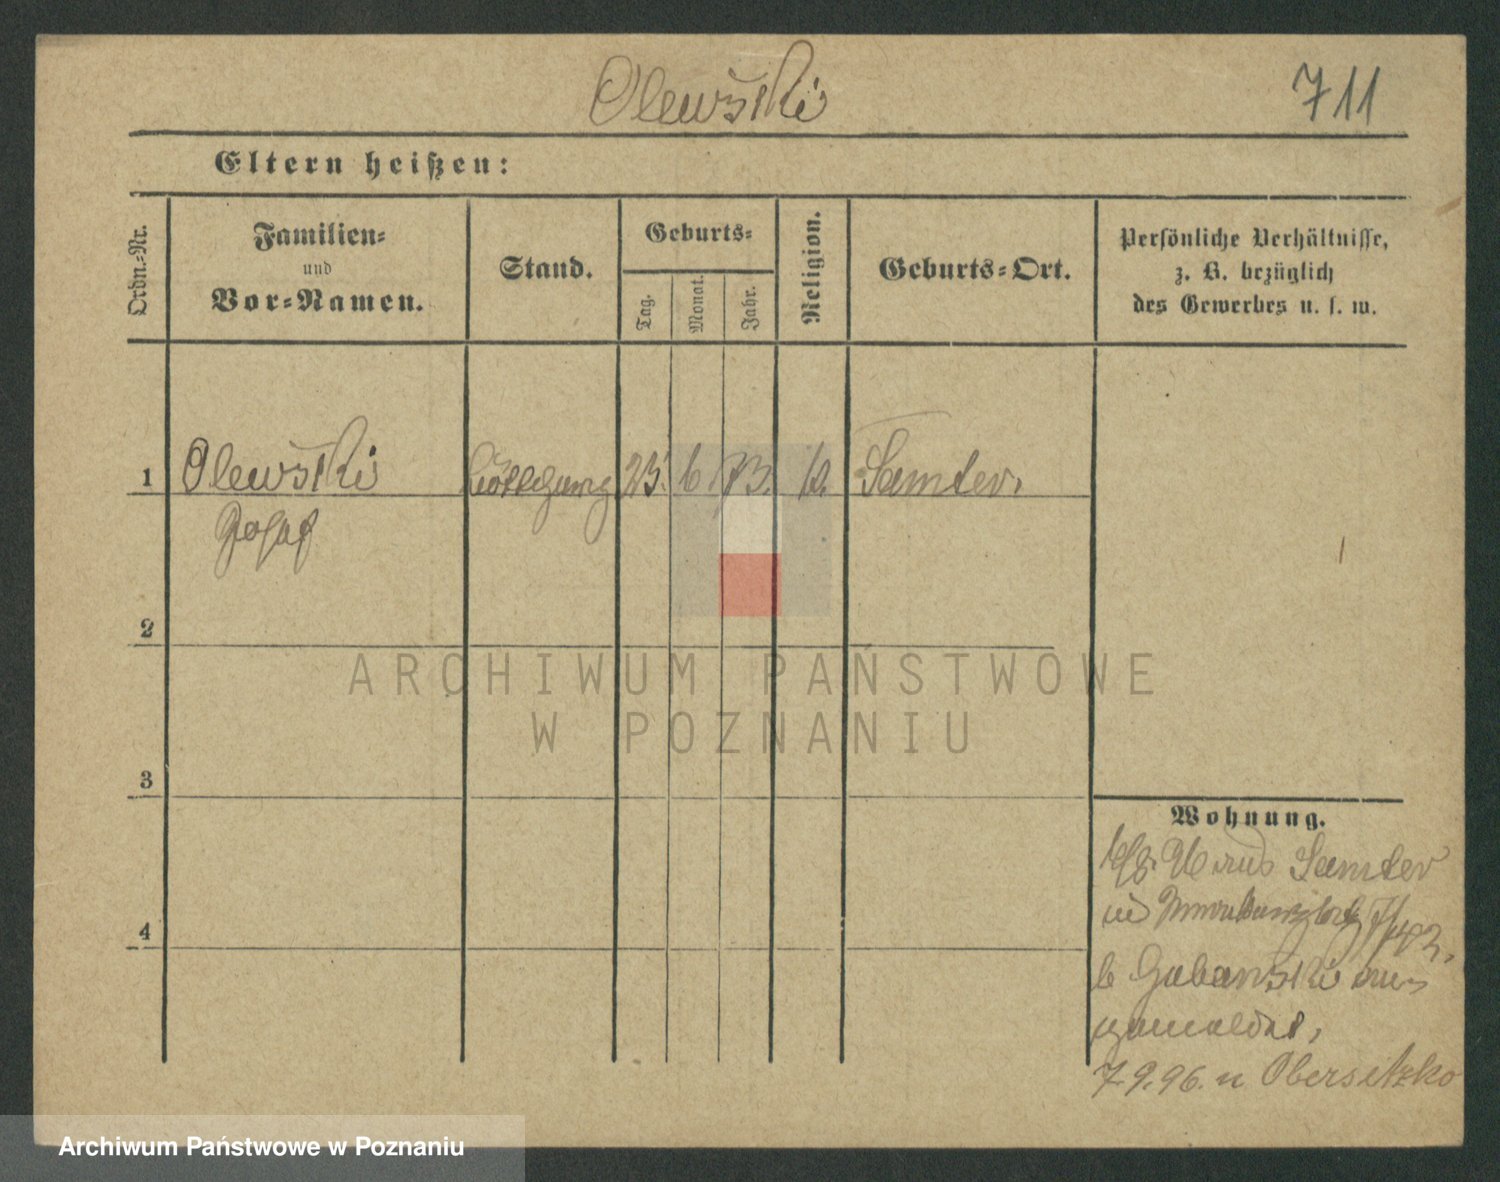 Olewski
711
Eltern heißen:
Ordn.-Nr.
Familien-
und
Vor-Namen.
Stand.
Geburts-
Tag.
Monat.
Jahr.
Religion.
Geburts-Ort.
Persönliche Verhältnisse,
z. B. bezüglich
des Gewerbes u. s. w.
1 Olewski 23. 6. 73. k. Samter.
Josef
2
3
4
Wohnung.
96 aus Samter
in
b
angemeldet,
7.9.96. n Obersitzko
ARCHIWUM PAŃSTWOWE
W POZNANIU
Archiwum Państwowe w Poznaniu